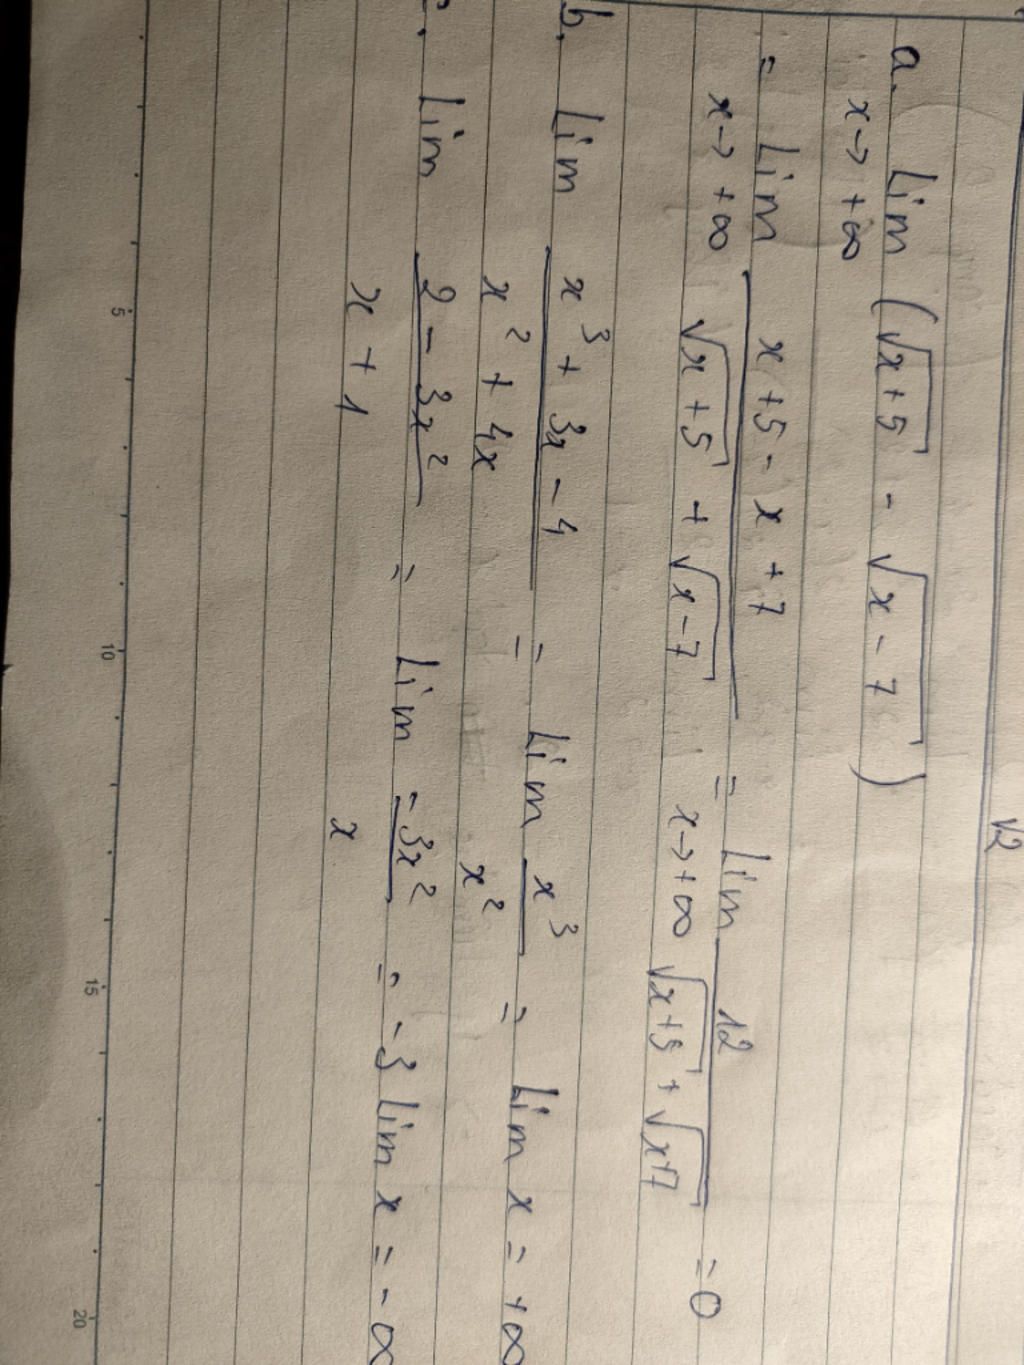 √2
a. lim (√x+5 - √x-7)
x→+∞
= lim x+5-x+7 / √x+5 + √x-7 = lim 12 / √x+5 + √x+7 = 0
x→+∞ x→+∞
b. lim x³+3x-4 / x²+4x = lim x³ / x² = lim x = +∞
lim 2-3x² / x+1 = lim -3x² / x = -3 lim x = -∞
5 10 15 20